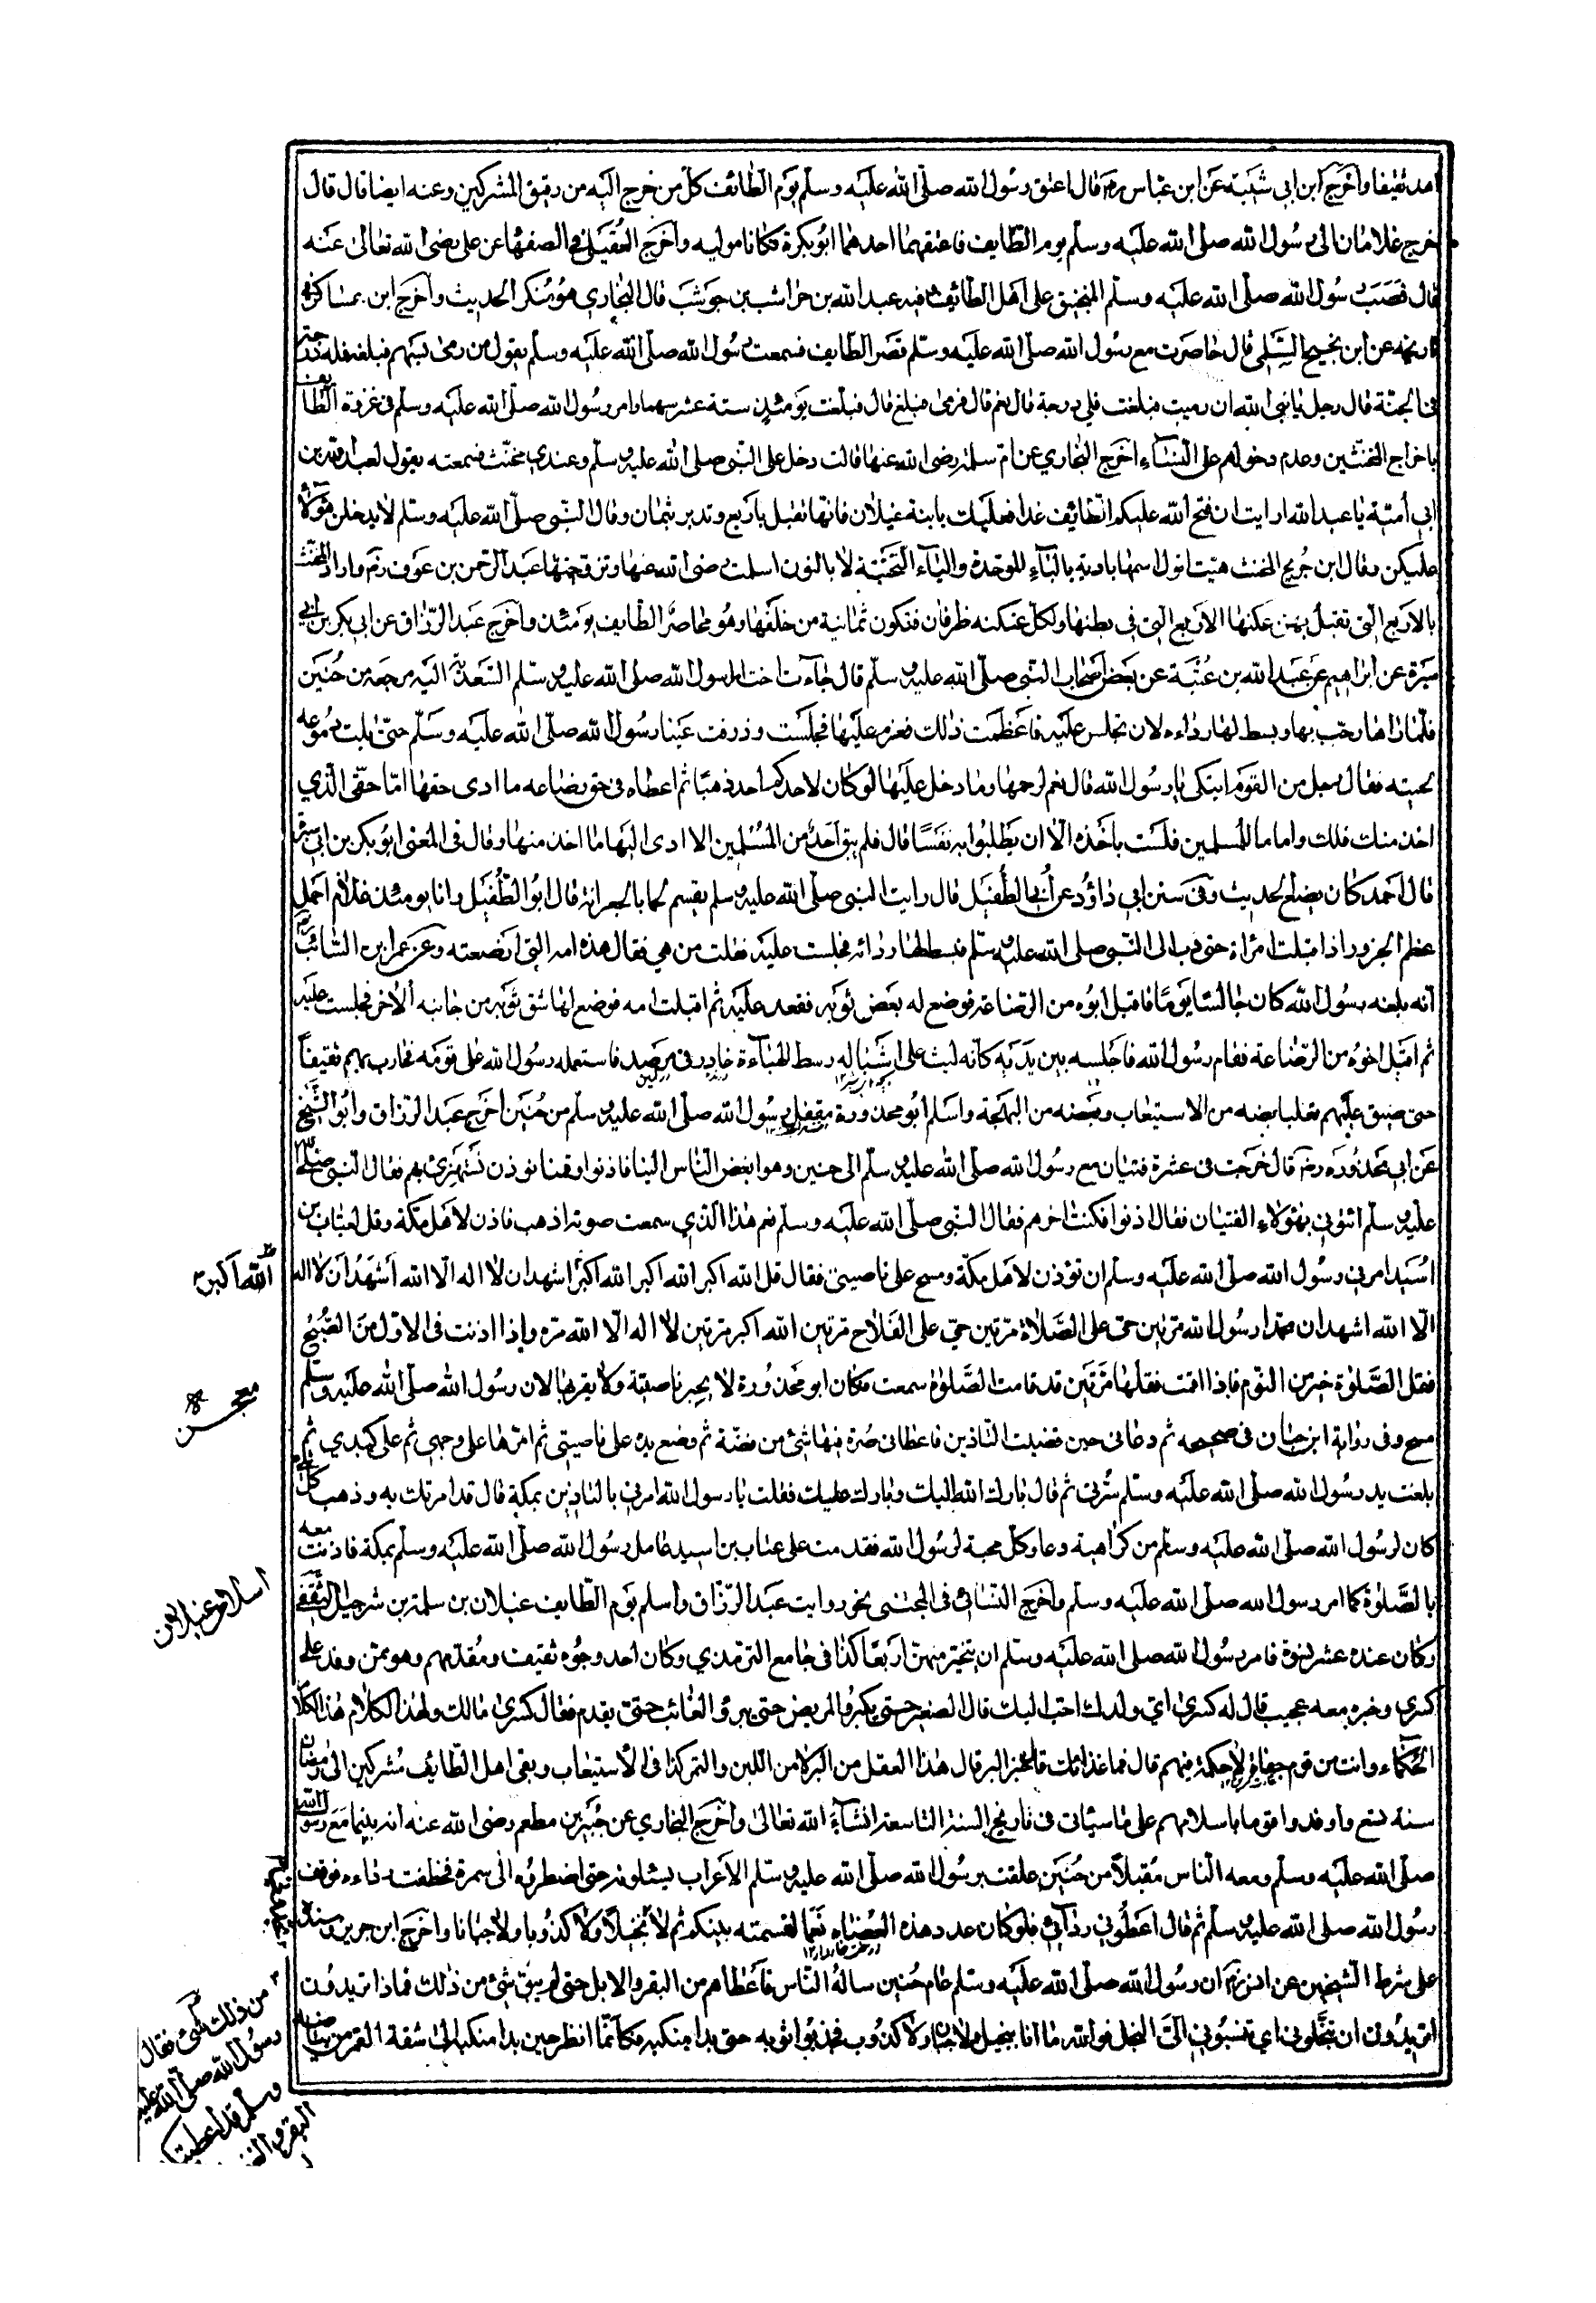 اهد ثقيفا وأخرج ابن ابى شيبة عن ابن عباس رضـ قال اعتق رسول الله صلى الله عليه وسلم يوم الطائف كل من خرج اليه من رقيق المشركين وعنه ايضا قال قال
خرج غلامان الى رسول الله صلى الله عليه وسلم يوم الطايف فاعتقهما احدهما ابو بكرة فكانا موليه وأخرج العقيلى فى الضعفاء عن على رضى الله تعالى عنه
قال نصب رسول الله صلى الله عليه وسلم المنجنيق على اهل الطائف فيه عبد الله بن خراش بن حوشب قال البخارى هو منكر الحديث وأخرج ابن عساكر فى
تاريخه عن ابن نجيح السلمى قال حاصرت مع رسول الله صلى الله عليه وسلم قصر الطايف فسمعت رسول الله صلى الله عليه وسلم يقول من رمى بسهم فبلغ فله درجة
فى الجنة قال رجل يا نبى الله ان رميت فبلغت فلى درجة قال نعم قال فرمى فبلغ قال فبلغت يومئذ ستة عشر سهما وامر رسول الله صلى الله عليه وسلم فى غزوة الطايف
باخراج المخنثين وعدم دخولهم على النساء اخرج البخارى عن ام سلمة رضى الله عنها قالت دخل على النبى صلى الله عليه وسلم وعندى مخنث فسمعته يقول لعبد الله بن
ابى أمية يا عبد الله ارايت ان فتح الله عليكم الطائف غدا فعليك بابنة غيلان فانها تقبل باربع وتدبر بثمان وقال النبى صلى الله عليه وسلم لا يدخلن هؤلاء
عليكن وقال ابن جريج المخنث هيت اقول اسمها بادية بالباء الموحدة والياء التحتية لا بالنون اسلمت رضى الله عنها وتزوجها عبد الرحمن بن عوف رضـ واراد المخنث
بالاربع التى تقبل بهن عكنها الاربع التى فى بطنها ولكل عكنه طرفان فتكون ثمانية من خلفها وهو محاصر الطايف يومئذ وأخرج عبد الرزاق عن ابى بكر بن ابى
سبرة عن ابراهيم عن عبد الله بن عتبة عن بعض اصحاب النبى صلى الله عليه وسلم قال جاءت اخت رسول الله صلى الله عليه وسلم السعدية اليه مرجعه من حنين
فلما راها رحب بها وبسط لها رداءه لان تجلس عليه فاعظمت ذلك فعزم عليها فجلست وذرفت عينا رسول الله صلى الله عليه وسلم حتى بلت دموعه
لحيته فقال رجل من القوم اتبكى يا رسول الله قال نعم لرحمها وما دخل عليها لو كان لاحدكم احد ذهبا ثم اعطاه فى حق رضاعه ما ادى حقها اما حقى الذى
اخذ منك فلك واما ما للمسلمين فلست باخذه الا ان يطلبوا به نفسا قال فلم يبق احد من المسلمين الا ادى اليها ما اخذ منها وقال فى المغنى ابو بكر بن ابى سبرة
قال احمد كان يضع الحديث وفى سنن ابى داؤد عن ابى الطفيل قال رايت النبى صلى الله عليه وسلم يقسم لحما بالجعرانة قال ابو الطفيل وانا يومئذ غلام احمل
عظم الجزور اذ اقبلت امراة حتى دنت الى النبى صلى الله عليه وسلم فبسط لها ردائه فجلست عليه فقلت من هى فقال هذه امه التى ارضعته وعن عمر بن السائب
انه بلغه رسول الله كان جالسا يوما فاقبل ابوه من الرضاعة فوضع له بعض ثوبه فقعد عليه ثم اقبلت امه فوضع لها شق ثوبه من جانبه الاخر فجلست عليه
ثم اقبل اخوه من الرضاعة فقام رسول الله فاجلسه بين يديه كانه ليث على اشباله وسط الهباءة خادر فى مرصد فاستعمله رسول الله على قومه فحارب بهم ثقيفا
حتى ضيق عليهم بعضه من الاستيعاب وبعضه من البهجة واسلم ابو محذورة مقفل رسول الله صلى الله عليه وسلم من حنين اخرج عبد الرزاق وابو الشيخ
عن ابى محذورة رضـ قال خرجت فى عشرة فتيان مع رسول الله صلى الله عليه وسلم الى حنين وهو ابغض الناس الينا فاذنوا وقمنا نؤذن نستهزئ بهم فقال النبى صلى الله
عليه وسلم ائتونى بهؤلاء الفتيان فقال اذنوا فكنت اخرهم فقال النبى صلى الله عليه وسلم نعم هذا الذى سمعت صوته اذهب فاذن لاهل مكة وقل لعتاب بن
اسيد امرنى رسول الله صلى الله عليه وسلم ان تؤذن لاهل مكة ومسح على ناصيتى فقال قل الله اكبر الله اكبر الله اكبر اشهد ان لا اله الا الله أشهد ان لا اله
الا الله اشهد ان محمدا رسول الله مرتين حى على الصلاة مرتين حى على الفلاح مرتين الله اكبر مرتين لا اله الا الله مره وإذا اذنت فى الاول من الصبح
فقل الصلوة خير من النوم فاذا اقمت فقلها مرتين قد قامت الصلوة سمعت فكان ابو محذورة لا يجز ناصيته ولا يفرقها لان رسول الله صلى الله عليه وسلم
مسح وفى رواية ابن حبان فى صحيحه ثم دعانى حين قضيت التاذين فاعطانى صرة فيها شئ من فضة ثم وضع يده على ناصيتى ثم امرها على وجهى ثم على كبدى ثم
بلغت يد رسول الله صلى الله عليه وسلم سرتى ثم قال بارك الله لك وبارك عليك فقلت يا رسول الله امرنى بالتاذين بمكة قال قد امرتك به وذهب كل شئ
كان لرسول الله صلى الله عليه وسلم من كراهية وعاد كل محبة لرسول الله فقدمت على عتاب بن اسيد عامل رسول الله صلى الله عليه وسلم بمكة فاذنت معه
بالصلوة كما امر رسول الله صلى الله عليه وسلم وأخرج النسائى فى المجتبى نحو روايت عبد الرزاق وأسلم يوم الطايف غيلان بن سلمة بن شرحبيل الثقفى
وكان عنده عشر نسوة فامره رسول الله صلى الله عليه وسلم ان يتخير منهن اربعا كذا فى جامع الترمذى وكان احد وجوه ثقيف ومقدميهم وهو ممن وفد على
كسرى وخبره معه عجيب قال له كسرى اى ولدك احب اليك قال الصغير حتى يكبر والمريض حتى يبرؤ والغائب حتى يقدم فقال كسرى مالك ولهذا الكلام هذا كلام
الحكماء وانت من قوم جفاة لا حكمة فيهم قال فما غذائك قال خبز البر قال هذا العقل من البر لا من اللبن والتمر كذا فى الاستيعاب وبقى اهل الطايف مشركين الى رمضان
سنة تسع وأوفدوا قوما باسلامهم على ما سياتى فى تاريخ السنة التاسعة انشاء الله تعالى وأخرج البخارى عن جبير بن مطعم رضى الله عنه انه بينما مع رسول الله
صلى الله عليه وسلم ومعه الناس مقبلا من حنين علقت برسول الله صلى الله عليه وسلم الاعراب يسئلونه حتى اضطروه الى سمرة فخطفت رداءه فوقف
رسول الله صلى الله عليه وسلم ثم قال اعطونى ردائى فلو كان عدد هذه العضاه نعما لقسمته بينكم ثم لا تجدونى بخيلا ولا كذوبا ولا جبانا وأخرج ابن جرير بسند
على شرط الشيخين عن انس رضـ ان رسول الله صلى الله عليه وسلم عام حنين ساله الناس فاعطاهم من البقر والابل حتى لم يبق شئ من ذلك فماذا تريدون
اتريدون ان تبخلونى اى تنسبونى الى البخل فوالله ما انا ببخيل ولا جبان ولا كذوب فجذبوا ثوبه حتى بدا منكبه فكانما انظر حين بدا منكبه الى شقة القمر من بياضه
الله اكبر
اسلام غيلان
من ذلك شئ فقال
رسول الله صلى الله عليه
وسلم قد اعطيتكم
البقر و